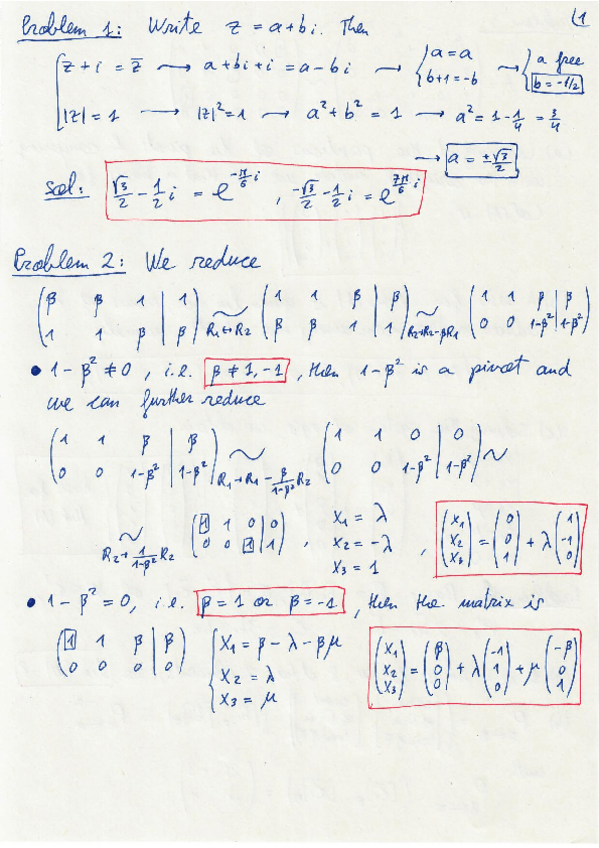 (1
Problem 1: Write z = a+bi. Then
{ z+i = z̅ ⟶ a+bi+i = a-bi ⟶ { a=a b+1=-b ⟶ { a free b=-1/2
|z|=1 ⟶ |z|²=1 ⟶ a²+b² = 1 ⟶ a²=1-1/4 = 3/4
⟶ a = ±√3/2
sol: √3/2 - 1/2 i = e^(-π/6 i) , -√3/2 - 1/2 i = e^(7π/6 i)
Problem 2: We reduce
(β β 1 | 1; 1 1 β | β) ~ R₁↔R₂ (1 1 β | β; β β 1 | 1) ~ R₂→R₂-βR₁ (1 1 β | β; 0 0 1-β² | 1-β²)
• 1-β² ≠ 0 , i.e. β ≠ 1,-1 , then 1-β² is a pivot and
we can further reduce
(1 1 β | β; 0 0 1-β² | 1-β²) ~ R₁→R₁ - β/(1-β²) R₂ (1 1 0 | 0; 0 0 1-β² | 1-β²) ~
~ R₂→ 1/(1-β²) R₂ (1 1 0 | 0; 0 0 1 | 1) , x₁ = λ x₂ = -λ x₃ = 1 , (x₁; x₂; x₃) = (0; 0; 1) + λ (1; -1; 0)
• 1-β² = 0, i.e. β=1 or β=-1 , then the matrix is
(1 1 β | β; 0 0 0 | 0) { x₁ = β - λ - βμ x₂ = λ x₃ = μ (x₁; x₂; x₃) = (β; 0; 0) + λ (-1; 1; 0) + μ (-β; 0; 1)